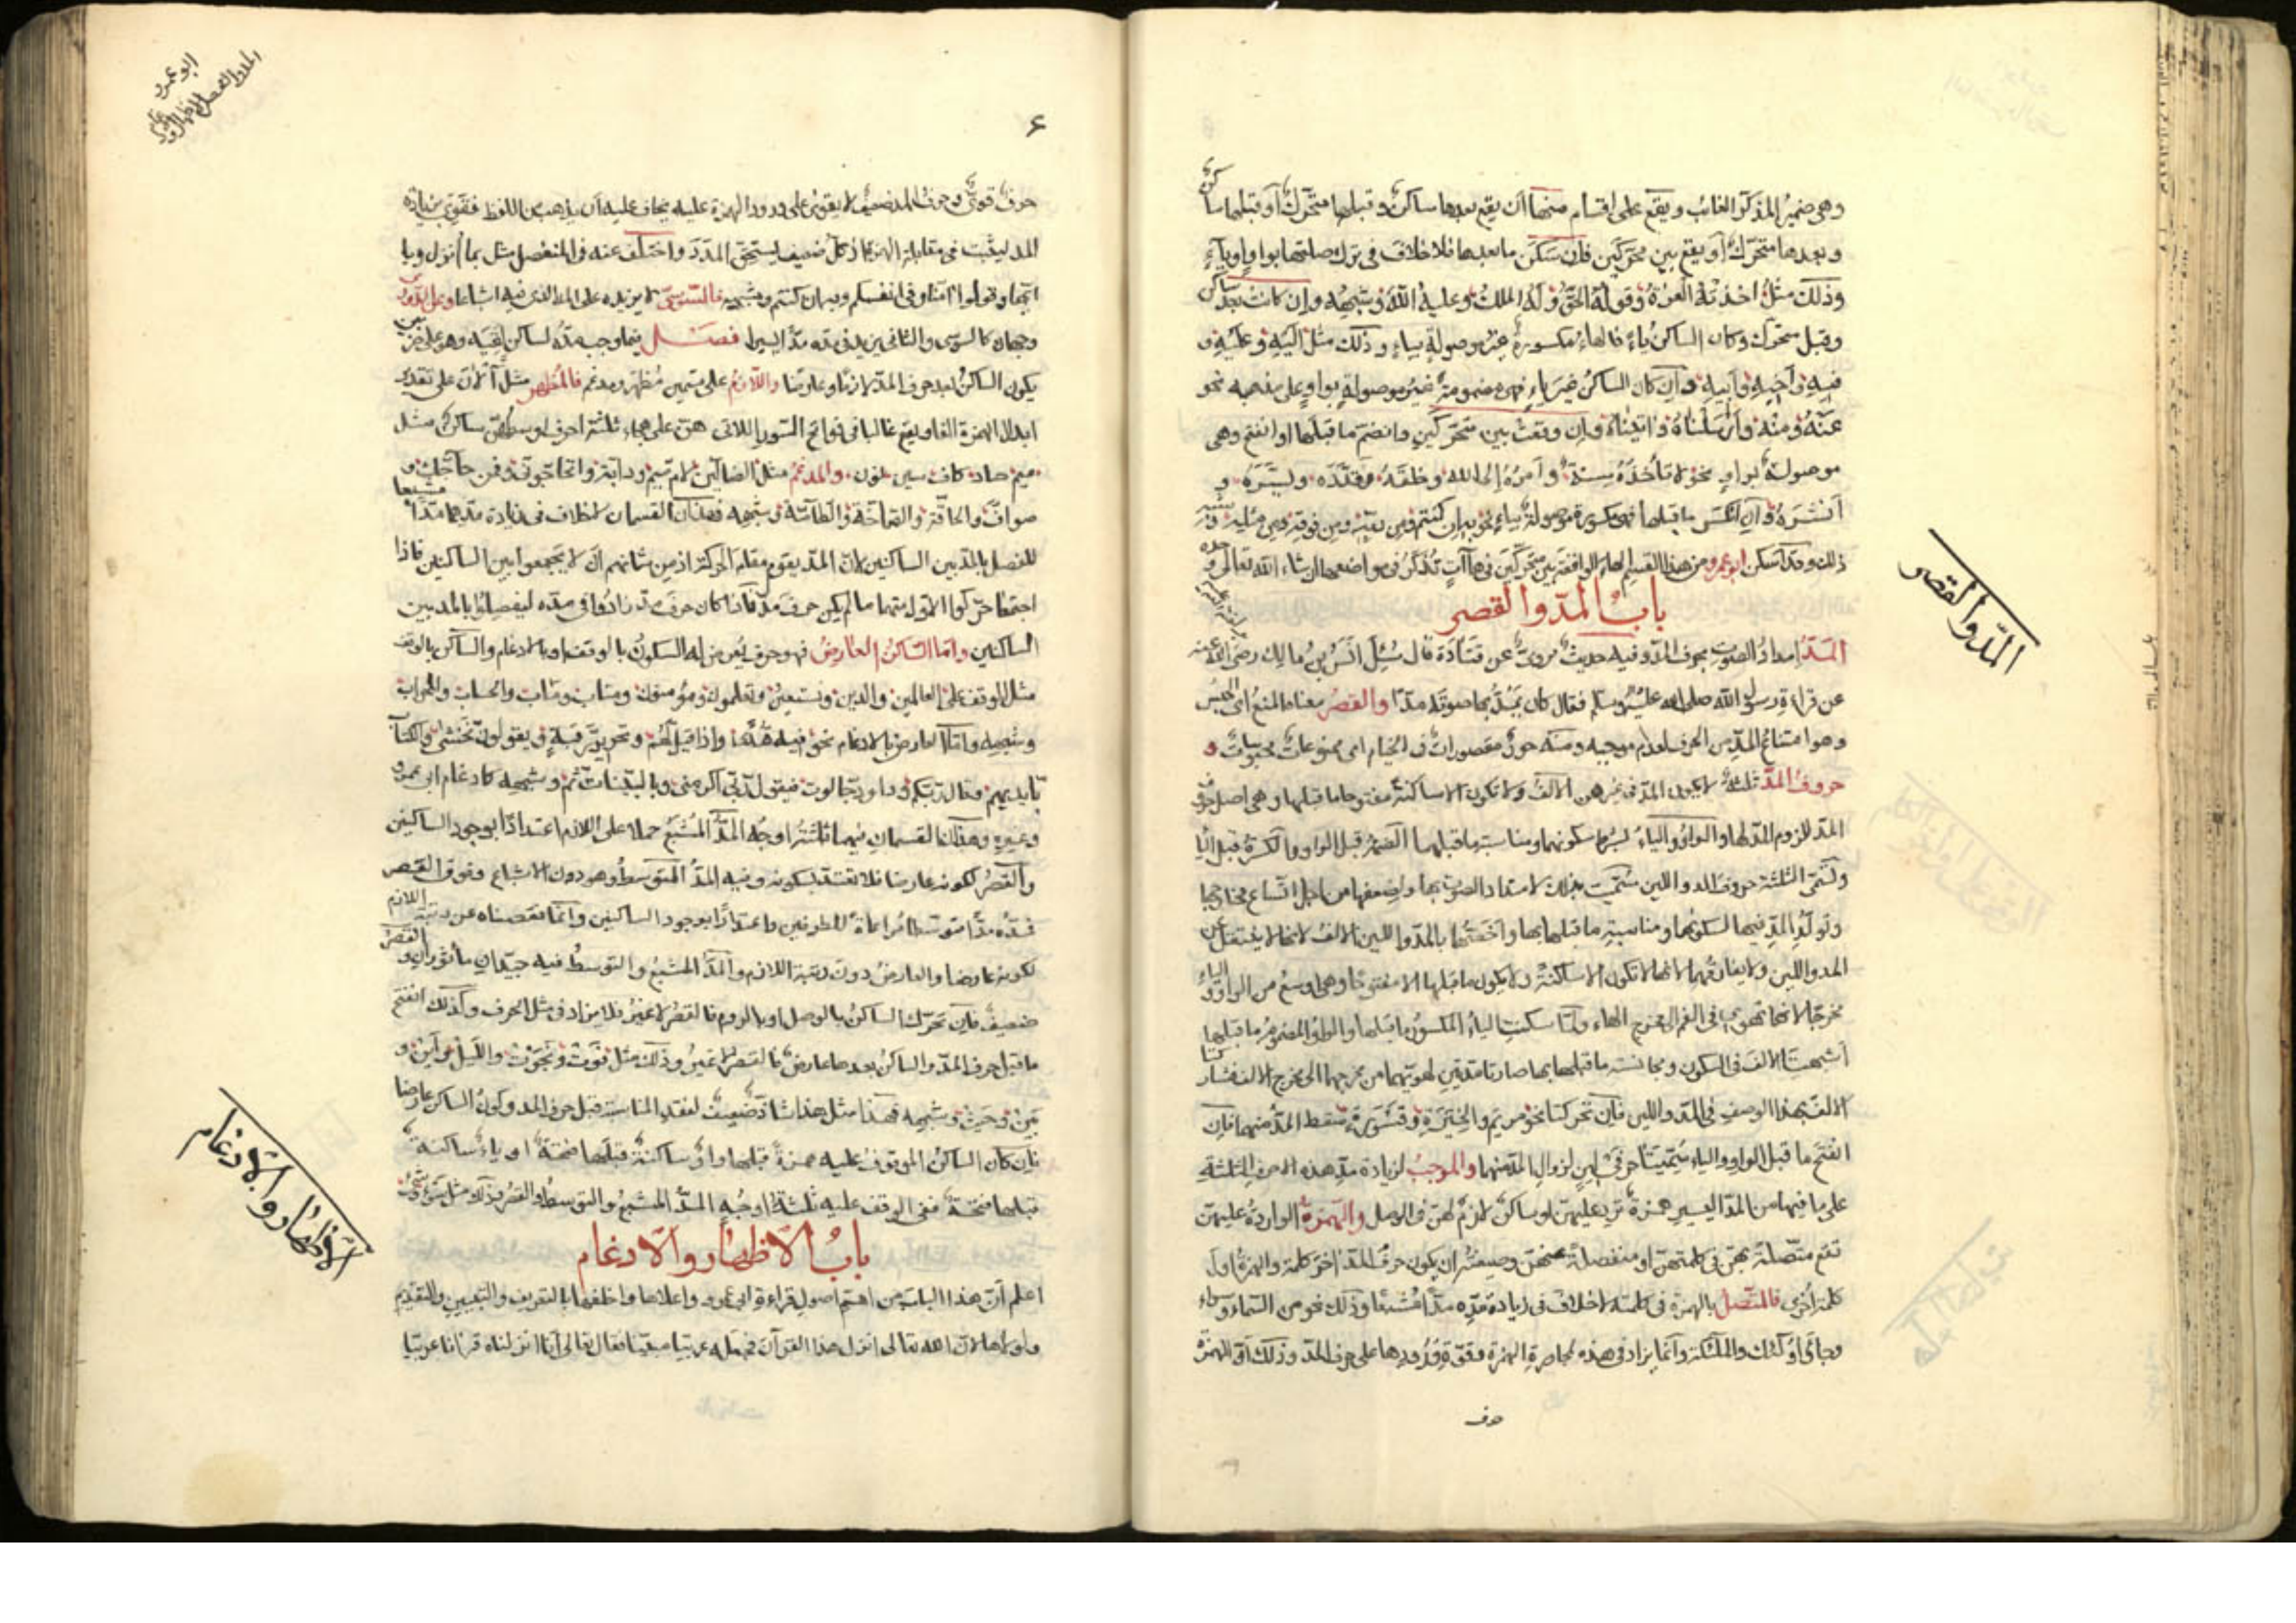 وهي ضمير المذكر الغائب ويقع على اقسام منها ان يقع بعدها ساكن وقبلها متحرك او قبلها ساكن
وبعدها متحرك او يقع بين محركين فان سكن ما بعدها فلا خلاف في ترك صلتها بواو او ياء
وذلك مثل اخذته العزة وقوله الحق وله الملك وعليه الله وشبهه وان كانت بعد ساكن
وقبل متحرك وكان الساكن ياء فالهاء مكسورة غير موصولة بياء وذلك مثل اليه وعليه و
فيه واخيه وابيه وان كان الساكن غير ياء فهي مضمومة غير موصولة بواو على مذهبه نحو
عنه ومنه وارسلناه واتيناه وان وقعت بين متحركين وانضم ما قبلها او انفتح وهي
موصولة بواو نحو لا تأخذه سنة وامره الى الله وخلقه فقدره ويسره و
انشره وان انكسر ما قبلها فهي مكسورة موصولة بياء نحو به ان كنتم ومن فوقه ومن مثليه وشبه
ذلك وقد اسكن ابو عمرو من هذا القسم الهاء الواقعة بين متحركين في هاآت تذكر في مواضعها ان شاء الله تعالى وحده
باب المد والقصر
المد والقصر
المد امداد الصوت بحرف المد وفيه حديث مروي عن قتادة قال سئل انس بن مالك رضي الله عنه
عن قراءة رسول الله صلى الله عليه وسلم فقال كان يمد بها صوته مدا والقصر معناه المنع اي الحبس
وهو امتناع المد من الحرف لعدم موجبه ومنه حور مقصورات في الخيام اي ممنوعات محبوسات و
حروف المد ثلثة لا يكون المد في غيرهن الالف ولا تكون الا ساكنة مفتوحا ما قبلها وهي اصل حروف
المد للزوم المد لها والواو والياء بشرط سكونهما ومناسبة ما قبلهما الضمة قبل الواو والكسرة قبل الياء
وتسمى الثلثة حروف المد واللين سميت بذلك لامتداد الصوت بها وضعفها من اجل اتساع مخارجها
وتولد المد فيها لسكونها ومناسبة ما قبلها بها واخفها بالمد واللين الالف لانها لا ينتقل عن
المد واللين ولا يفارقهما لانها لا تكون الا ساكنة ولا يكون ما قبلها الا مفتوحا وهي اوسع من الواو والياء
مخرجا لانها تهوي في الفم الى مخرج الهاء ولما سكنت الياء المكسور ما قبلها والواو المضموم ما قبلها
اشبهتا الالف في السكون ومجانسة ما قبلهما بها صارتا مدتين لهويهما من مخرجهما الى مخرج الالف فشاركتا
الالف بهذا الوصف في المد واللين فان تحركتا نحو مريم والخيرة وقسورة سقط المد منهما فان
انفتح ما قبل الواو والياء سميتا حرفي لين لزوال المد منهما والموجب لزيادة مد هذه الاحرف الثلثة
على ما فيها من المد اليسير همزة ترد عليهن او ساكن لازم لهن في الوصل والهمزة الواردة عليهن
تقع متصلة بهن في كلمتهن او منفصلة عنهن وصيغته ان يكون حرف المد اخر كلمة والهمزة اول
كلمة اخرى فالمتصل بالهمزة في كلمته لا خلاف في زيادة مده مدا مشبعا وذلك نحو من السماء وسواء
وجاؤا واولئك والملئكة وانما يزاد في هذه لمجاورة الهمزة وقوة ورودها على حرف المد وذلك ان الهمزة
حرف
٤
حرف قوي وحرف المد ضعيف لا يقوى على ورود الهمزة عليه يخاف عليه ان يذهب من اللفظ فقوي بزيادة
المد ليثبت في مقابلة الهمزة اذ كل ضعيف يستحق المدد واختلف عنه في المنفصل مثل بما انزل ويا
ايها وقولوا امنا وفي انفسكم وبه ان كنتم وشبهه فالسوسي لا يزيده على المد الذي فيه اشباعا وعن الدوري
وجهان كالسوسي والثاني يزيد في مده مدا يسيرا فصل فيما وجب مده لساكن لقيه وهو على ضربين
يكون الساكن بعد حرف المد لازما وعارضا واللازم على قسمين مظهر ومدغم فالمظهر مثل آلآن على تقدير
ابدال الهمزة الفا ويقع غالبا في فواتح السور اللاتي هن على هجاء ثلثة احرف اوسطهن ساكن مثل
ميم صاد كاف سين نون والمدغم مثل الضالين لام ميم ودابة واتحاجوني وفمن حاجك و
صواف والحاقة والصاخة والطامة وشبهه فهذان القسمان لا خلاف في زيادة مدهما مدا مشبعا
للفصل بالمد بين الساكنين لان المد يقوم مقام الحركة اذ من شانهم ان لا يجمعوا بين الساكنين فاذا
اجتمعا حركوا الاول منهما ما لم يكن حرف مد فاذا كان حرف مد زادوا في مده ليفصلوا بالمد بين
الساكنين واما الساكن العارض فهو حرف يعرض له السكون بالوقف او بالادغام والساكن بالوقف
مثل الوقف على العالمين والدين ونستعين وتعلمون ومؤمنون ومتاب وعقاب والحساب والمحراب
وشبهه واما العارض بالادغام نحو فيه هدى واذا قيل لهم وتحرير رقبة ويقولون نخشى والكتاب
بايديهم وقال ربكم وداود جالوت فيقول ربي اكرمن وبالبينات ثم وشبهه كادغام ابي عمرو
وغيره وهذان القسمان فيهما ثلثة اوجه المد المشبع حملا على اللازم اعتدادا بوجود الساكنين
والقصر لكونه عارضا فلا تعتد بسكونه وفيه المد المتوسط وهو دون الاشباع وفوق القصر
فمده مدا متوسطا مراعاة للطرفين واعتدادا بوجود الساكنين وانما نقصناه عن رتبة اللازم
لكونه عارضا والعارض دون رتبة اللازم والمد المشبع والتوسط فيه جيدان مأثوران والقصر
ضعيف فان تحرك الساكن بالوصل او بالروم فالقصر لا غير فلا يزاد في مثل الحرف وكذلك انفتح
ما قبل حرف المد والساكن بعدها عارض فالقصر لا غير وذلك مثل فوت ونجوت والليل واين و
بين وحيث وشبهه فهذا مثل هذا شاذ ضعيف لفقد المناسبة قبل حرف المد وكون الساكن عارضا
فان كان الساكن الموقوف عليه همزة قبلها واو ساكنة قبلها فتحة او ياء ساكنة
قبلها فتحة ففي الوقف عليه ثلثة اوجه المد المشبع والتوسط والقصر وذلك مثل سوء وشيء
باب الاظهار والادغام
الاظهار والادغام
اعلم ان هذا الباب من اهم اصول قراءة ابي عمرو واعلاها واخلقها بالتعريف والتبيين والتقديم
واولاها لان الله تعالى انزل هذا القرآن فجعله عربيا مبينا فقال تعالى انا انزلناه قرانا عربيا